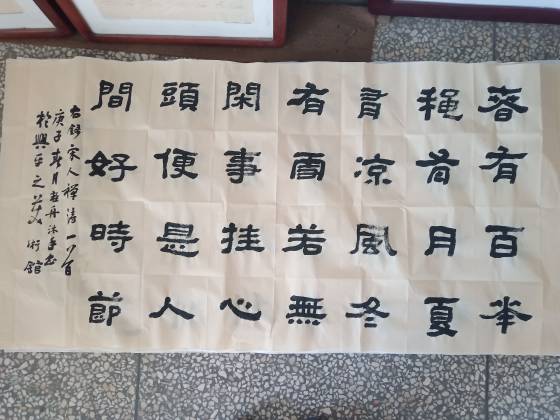 春有百華
穐有月夏
有凉風冬
有雪若無
閑事挂心
頭便是人
間好時節
右録宋人禅诗一首
庚子春月丹沐手书
於興平之美術館